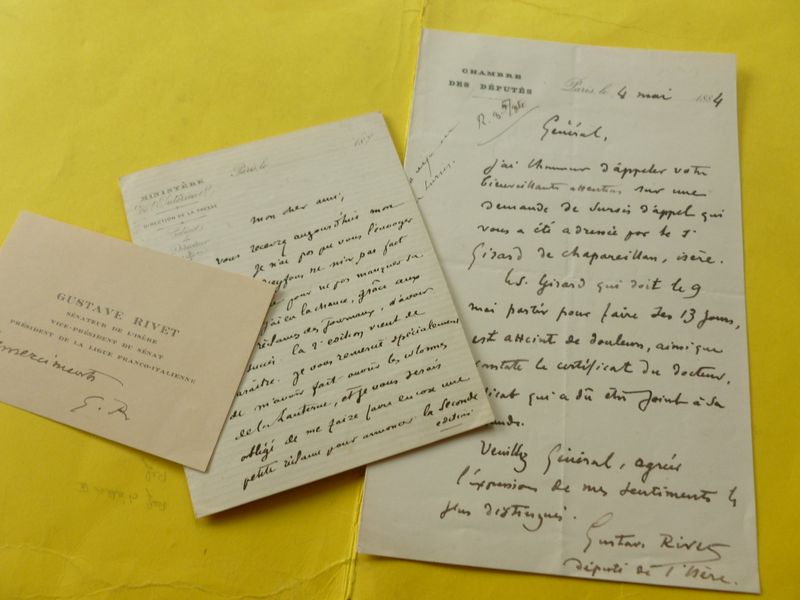 GUSTAVE RIVET
SÉNATEUR DE L'ISÈRE
VICE-PRÉSIDENT DU SÉNAT
PRÉSIDENT DE LA LIGUE FRANCO-ITALIENNE
G. R
MINISTÈRE
De l'Intérieur
DIRECTION DE LA PRESSE
Paris, le
187
Mon cher ami,
Vous recevrez aujourd'hui mon
Je n'ai pas pu vous l'envoyer
ne m'en a pas fait
pour ne pas manquer sa
j'ai eu la chance, grâce aux
réclames des journaux, d'avoir
succès. La 2e édition vient de
paraître. Je vous remercie spécialement
de m'avoir fait ouvrir les colonnes
de la Lanterne, et je vous serais
obligé de me faire faire encore une
petite réclame pour annoncer la seconde
édition
CHAMBRE
DES DÉPUTÉS
Paris, le 4 mai 1884
Général,
J'ai l'honneur d'appeler votre
bienveillante attention sur une
demande de sursis d'appel qui
vous a été adressée par le Sr
Girard de Chapareillan, Isère.
Le S. Girard qui doit le 9
mai partir pour faire ses 13 jours,
est atteint de douleurs, ainsi que
constate le certificat du docteur,
qui a dû être joint à sa
Veuillez Général, agréer
l'expression de mes sentiments les
plus distingués.
Gustave Rivet
député de l'Isère.